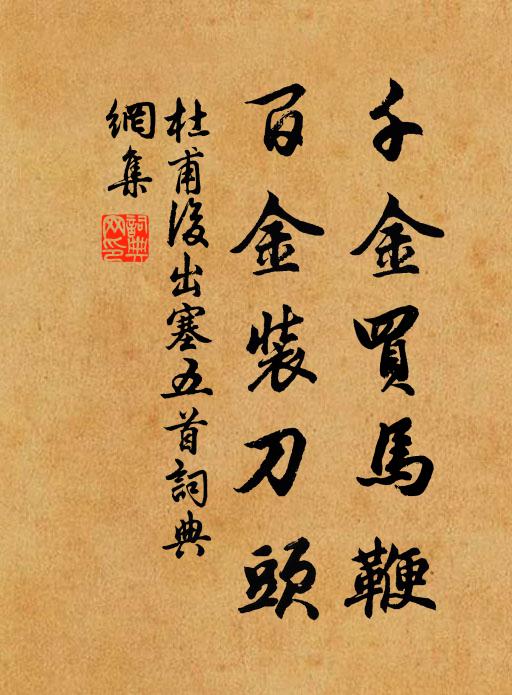 千金買馬鞭
百金裝刀頭
杜甫後出塞五首詞典
網集
詞典
网印